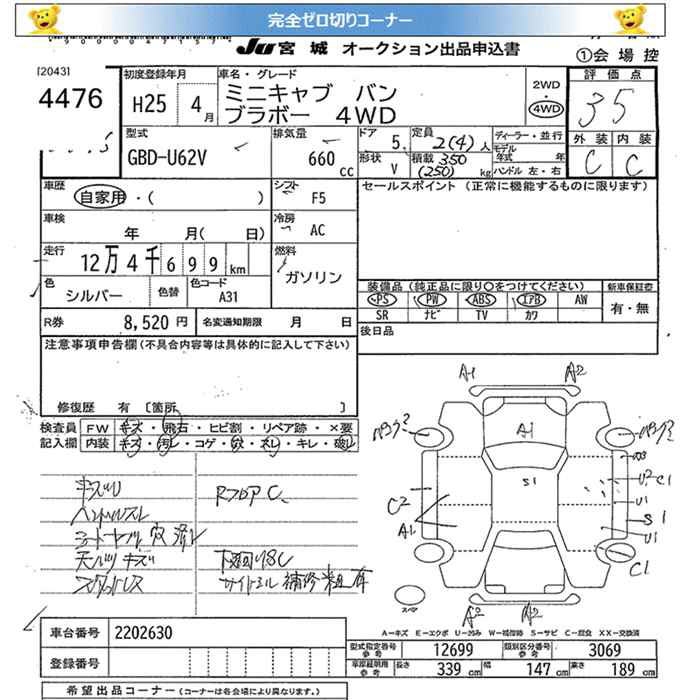 完全ゼロ切りコーナー
JU 宮城 オークション出品申込書
①会場控
[2043]
4476
初度登録年月
H25 4月
車名・グレード
ミニキャブ バン
ブラボー 4WD
2WD
・
4WD
評価点
35
外装 内装
C C
型式
GBD-U62V
排気量
660 cc
ドア
5
形状
V
定員
2(4)人
積載 350
(250) kg
ディーラー・並行
モデル
年式 年
ハンドル 左・右
車歴
自家用・( )
シフト
F5
車検
年 月( 日)
冷房
AC
走行
12万4千699km
燃料
ガソリン
色
シルバー
色替
色コード
A31
セールスポイント (正常に機能するものに限ります)
装備品 (純正品に限り○をつけてください)
新車保証書
PS PW ABS エアB AW
SR ナビ TV カワ
有・無
R券 8,520円
名変通知期限 月 日
後日品
注意事項申告欄(不具合内容等は具体的に記入して下さい)
修復歴 有 〔箇所 〕
検査員 FW キズ・飛石・ヒビ割・リペア跡・×要
記入欄 内装 キズ・汚レ・コゲ・穴・スレ・キレ・破レ
キズU
RフロアC
穴済
天ルツキズ
下廻りサビC
補修粗有
A1 A2
A1
S1
C2
A1
U2 C1
U1
S1
U1
C1
スペア
A2 A2
A-キズ E-エクボ U-凹み W-補修跡 S-サビ C-腐食 XX-交換済
車台番号 2202630
登録番号
型式指定番号
参考
12699
類別区分番号
参考
3069
車庫証明用
参考
長さ 339cm 幅 147cm 高さ 189cm
希望出品コーナー (コーナーは各会場により異なります。)